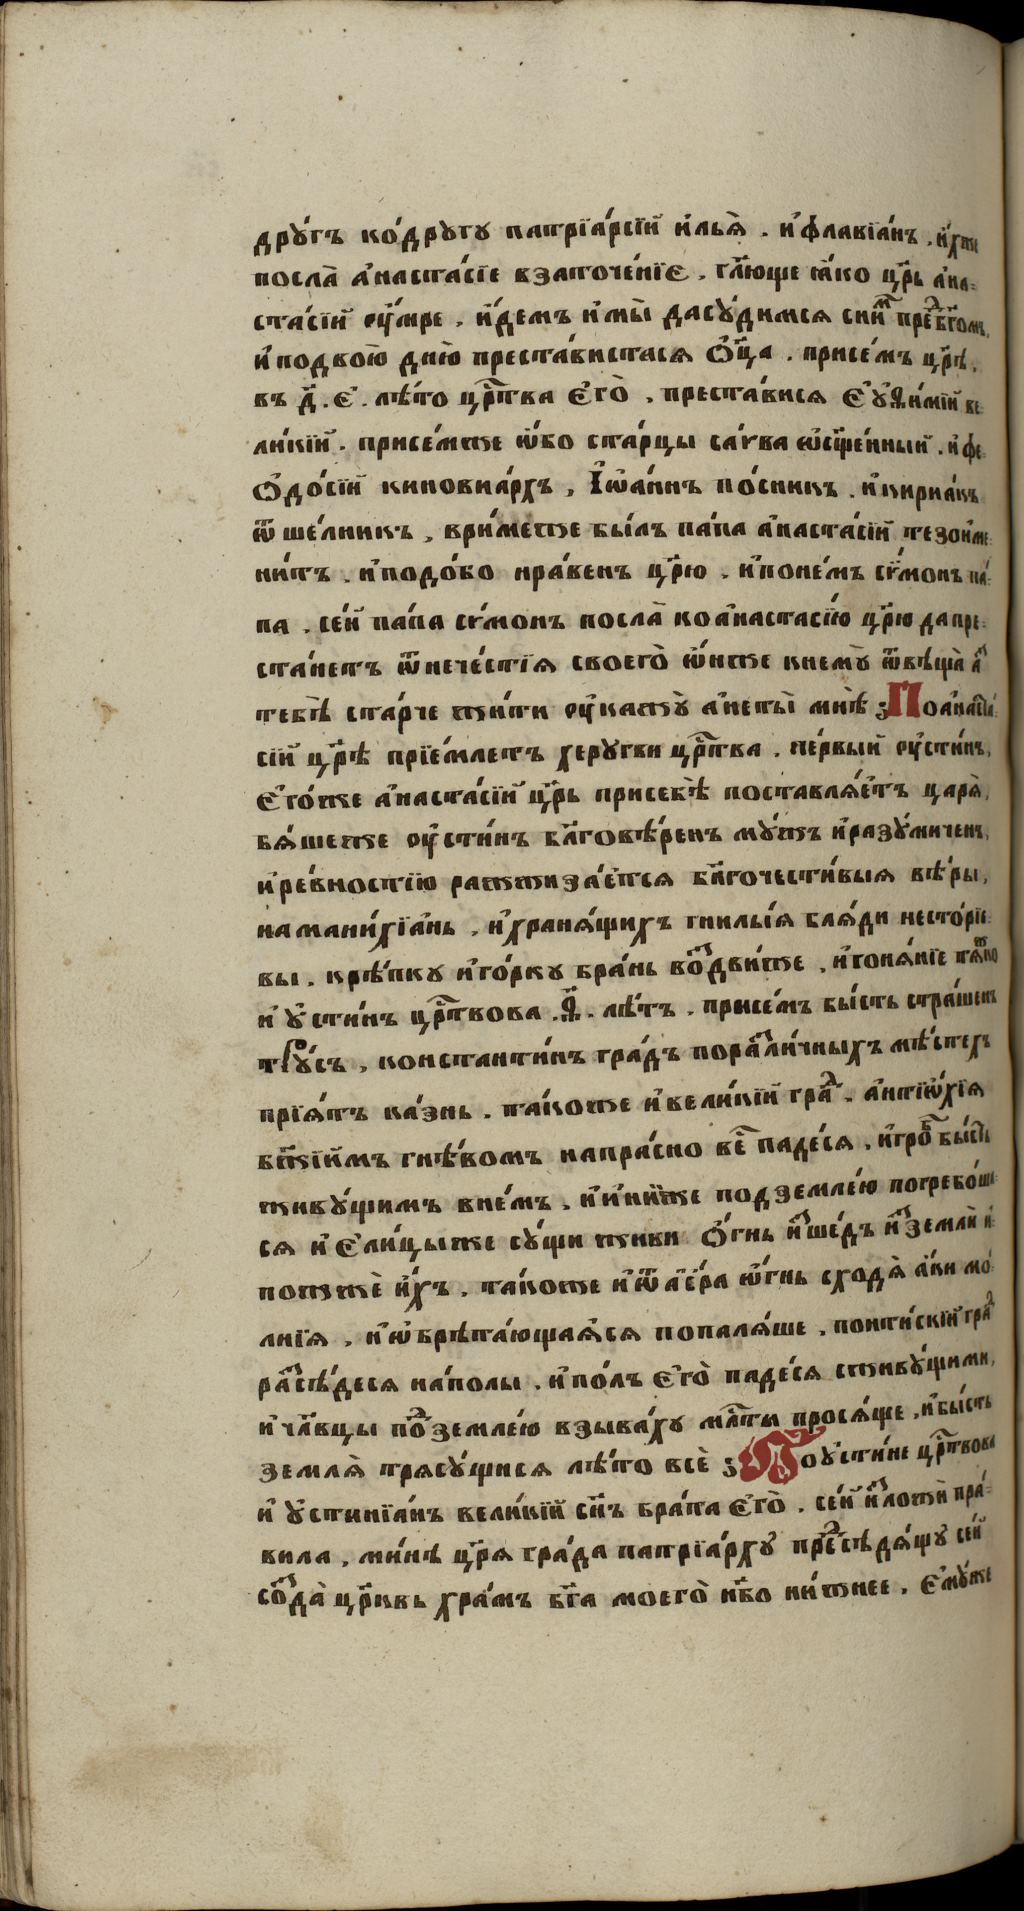 дрꙋ́гъ ко́дрꙋгꙋ патрїа́рсїй и҆лья̀ . и҆флавїа́нъ . и҆́хже
посла̀ а҆наста́сїе взаточе́нїє . гл҃юще ꙗ҆́ко цр҃ь а҆на-
ста́сїй ᲂу҆́мре . и҆́демъ и҆мы̀ дасꙋ́димся сни́мъ пре́дбг҃омъ .
и҆подвою̀ дню̀ преста́вистася ѻ҆ц҃а . присе́мъ цр҃ѣ .
въ д҃ . є҆ . лѣ́то црⷭ҇тва є҆гѡ̀ . преста́вися є҆ѵѳи́мїй ве-
ли́кїй . присе́мже ᲂу҆́бо ста́рцы са́вва ѡ҆сщ҃е́нный . и҆фе-
ѻ҆до́сїй киновиа́рхъ , і҆ѡа́ннъ по́сникъ . и҆кириа́къ
ѿше́лникъ , в̾ри́меже бы́лъ па́па а҆наста́сїй тезои҆ме-
ни́тъ . и҆подо́бо нра́венъ цр҃ю . и҆поне́мъ сѵ́монъ па́-
па . се́й па́па сѵ́монъ посла̀ коа҆наста́сїю цр҃ю да пре-
ста́нетъ ѿнече́стїя своего̀ ѻ҆́нже кнемꙋ̀ ѿвѣща̀ а҆́з
тебѣ̀ ста́рче жи́ти ᲂу҆кажꙋ̀ а҆неты̀ мнѣ̀ ⁏ Поа҆наста́-
сїй цр҃ѣ прїе́млетъ херꙋгви црⷭ҇тва . пе́рвый ᲂу҆сти́нъ ,
є҆го́же а҆наста́сїй цр҃ь присебѣ̀ поставля́етъ царя̀ ,
бя́шеже ᲂу҆сти́нъ бл҃говѣ́ренъ мꙋ́жъ и҆разꙋ́миченъ ,
и҆ре́вностїю ражжиза́ется бл҃гочести́выя вѣ́ры ,
на мани́хїа́нь . и҆храня́щихъ гнилы́я бля́ди несто́рїе-
вы . крѣ́пкꙋ и҆го́ркꙋ бра́нь воздви́же . и҆гоня́нїе тя́жко
и҆ ᲂу҆сти́нъ црⷭ҇твова . ѳ҃ . лѣ́тъ . присе́мъ бы́сть стра́шенъ
трꙋ́съ , константи́нъ гра́дъ пора́зли́чныхъ мѣ́стехъ
прїя́тъ ка́знь . та́коже и҆вели́кїй гра́д . а҆нтїѻ҆хїя
бж҃їимъ гнѣ́вомъ напра́сно ве́с падеся . и҆гро́б бы́сть
живꙋ́щимъ вне́мъ . и҆и҆ни́же подземле́ю погребо́ша-
ся и҆є҆ли́цыже сꙋ́щи живи ѻ҆́гнь и҆зше́дъ и҆зземлѝ и҆
пожжѐ и҆́хъ . та́коже и҆ѿа҆е́ра ѻ҆́гнь сходя̀ а҆́ки мо́-
лнїя . и҆ѻ҆брѣта́ющаяся попаля́ше . понти́скїй гра́д
разсѣ́деся на́полы . и҆по́лъ є҆го̀ паде́ся сживꙋ́щими ,
и҆чл҃вцы по́дземле́ю взыва́хꙋ млⷭ҇ти прося́ще . и҆бы́сть
земля̀ трясꙋ́щися лѣ́то всѐ ⁏ Поᲂу҆сти́не црⷭ҇твова
и҆ ᲂу҆стинїа́нъ вели́кїй сн҃ъ бра́та є҆го̀ . се́й и҆зложѝ пра́-
вила , ми́нѣ цр҃я гра́да патрїа́рхꙋ пре́дсѣдя́щꙋ се́й
созда̀ цр҃ковь хра́мъ бг҃а моего̀ нб҃о ни́жнее . є҆мꙋ́же